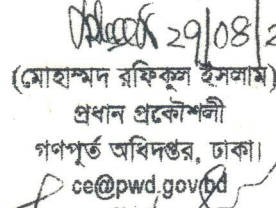 29/08/2
(মোহাম্মদ রফিকুল ইসলাম)
প্রধান প্রকৌশলী
গণপূর্ত অধিদপ্তর, ঢাকা।
ce@pwd.gov.bd